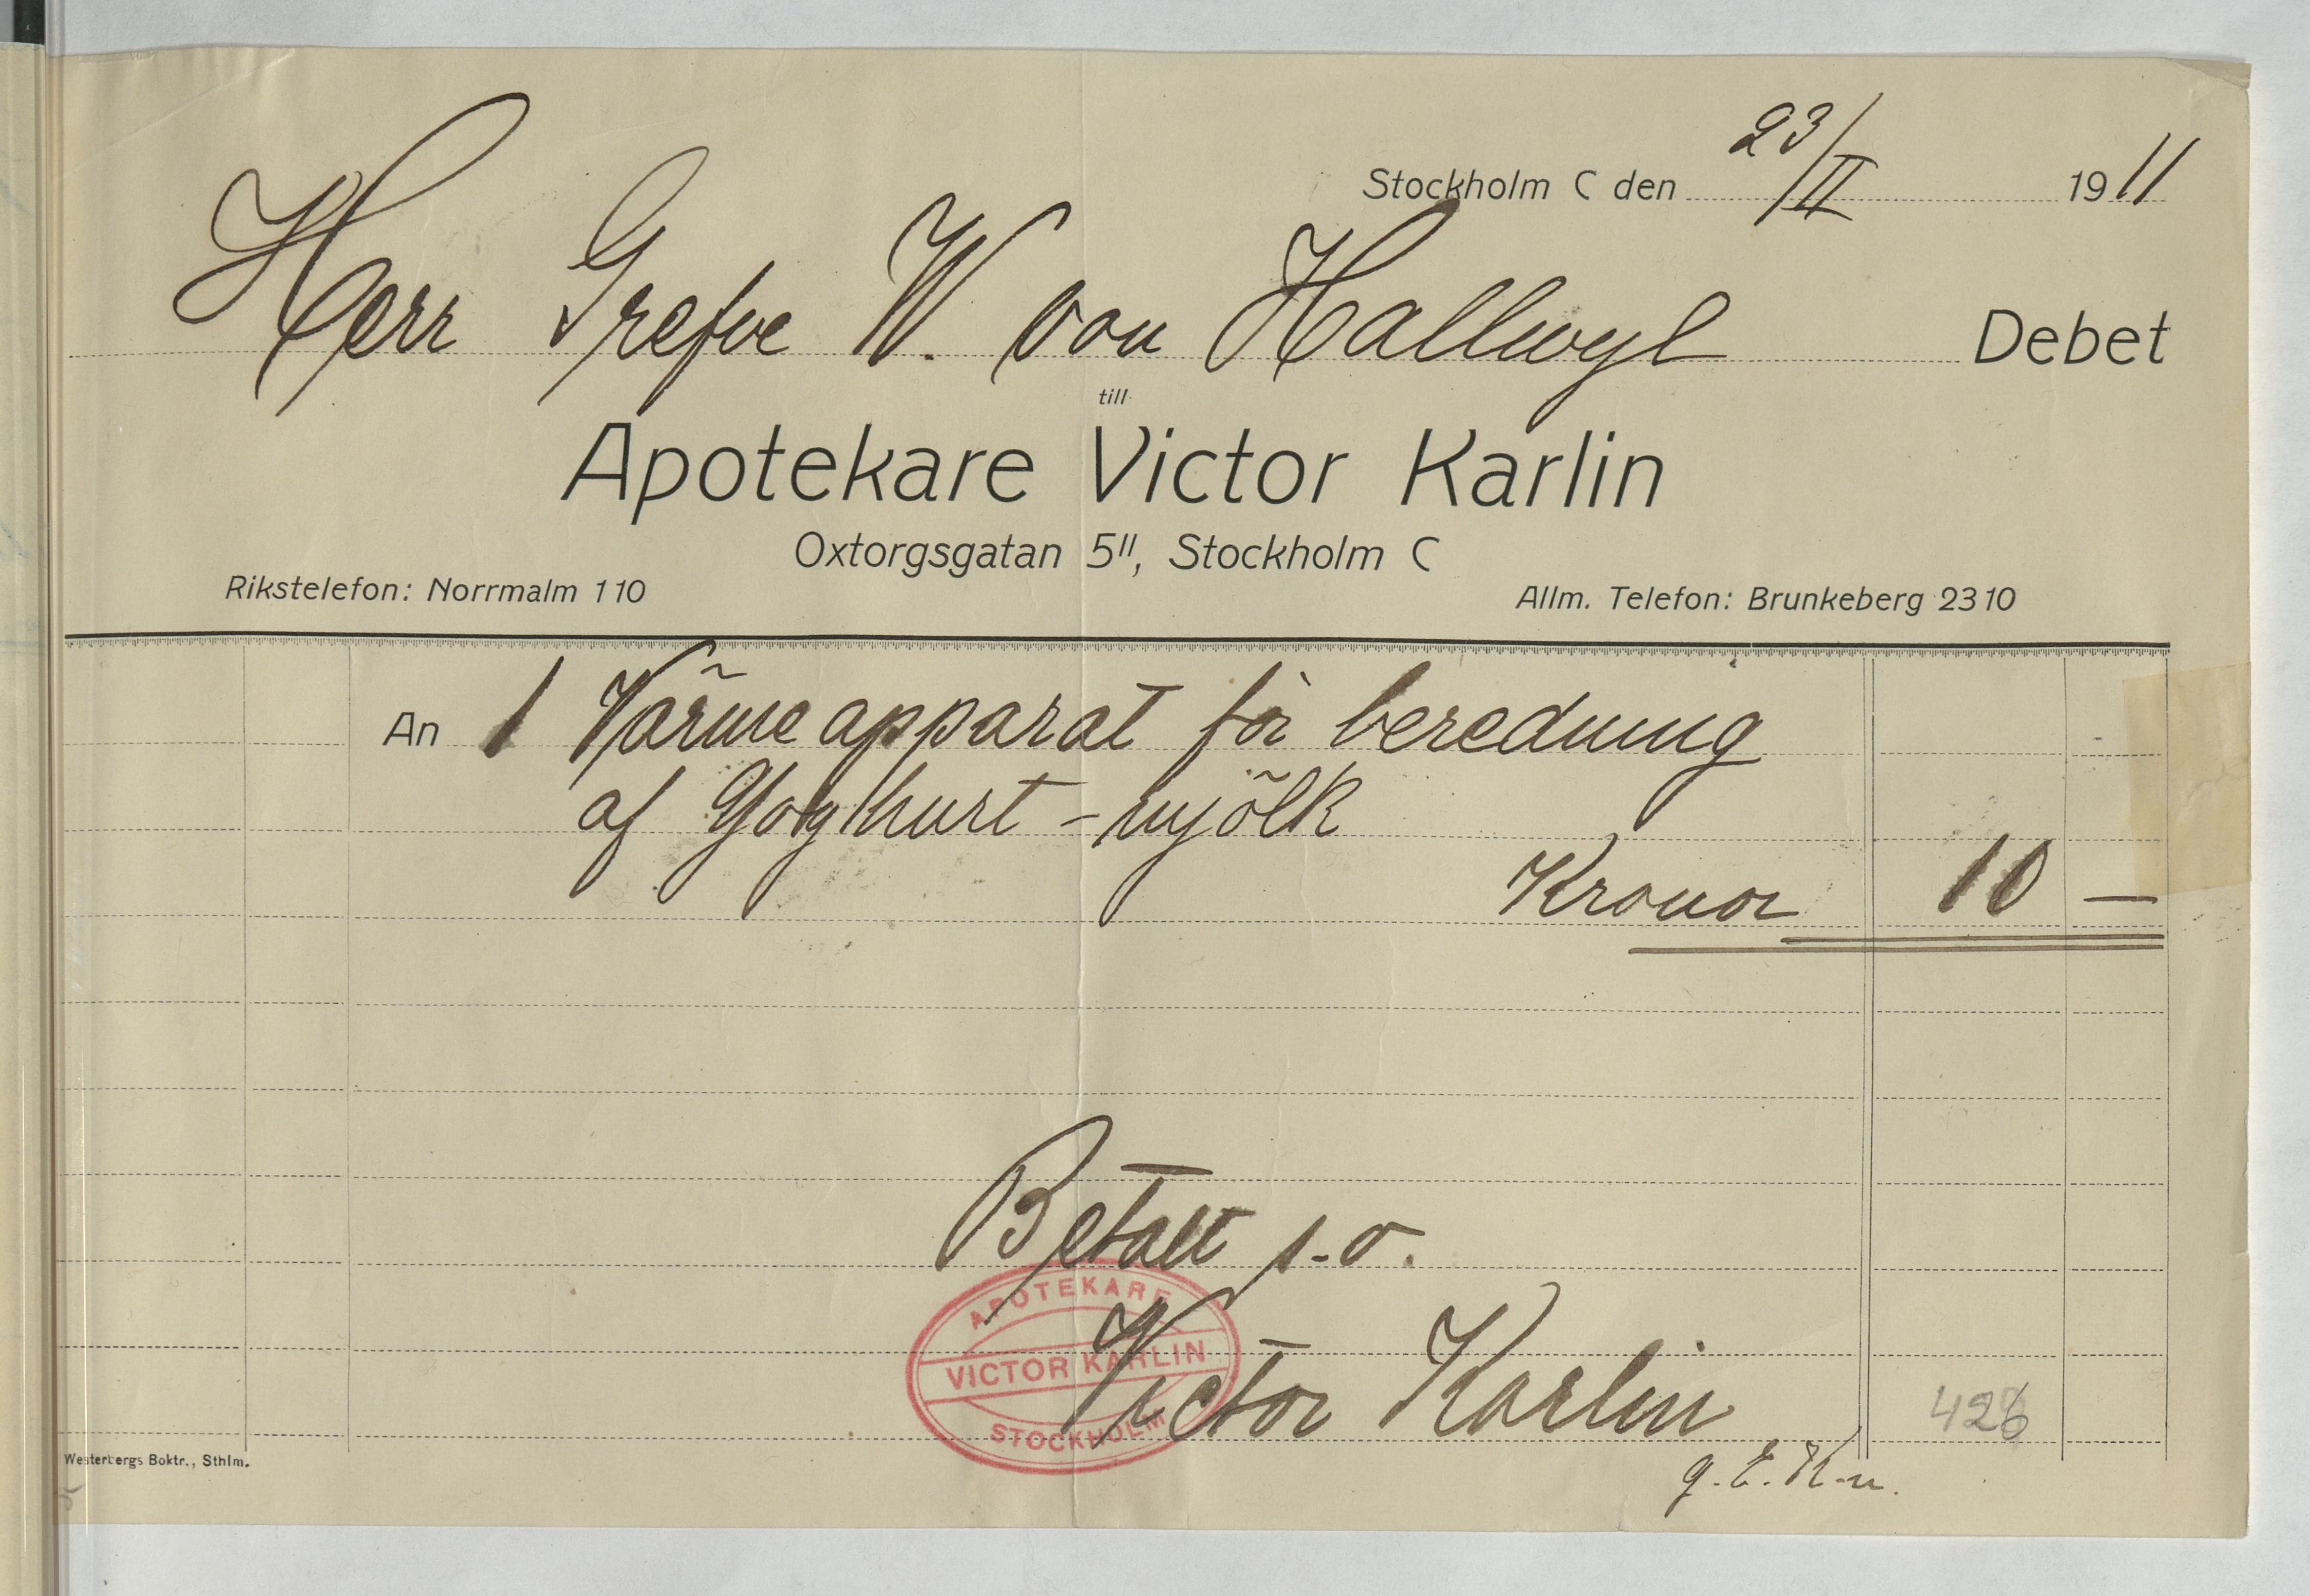 Stockholm C den 23/II 1911
Herr Grefve W. von Hallwyl Debet
till
Apotekare Victor Karlin
Oxtorgsgatan 5II, Stockholm C
Rikstelefon: Norrmalm 110 Allm. Telefon: Brunkeberg 2310
An 1 Värmeapparat för beredning
af Yoghurt-mjölk
Kronor 10 —
Betalt s.o.
APOTEKARE
VICTOR KARLIN
STOCKHOLM
Victor Karlin
g. E. K-n.
Westerbergs Boktr., Sthlm.